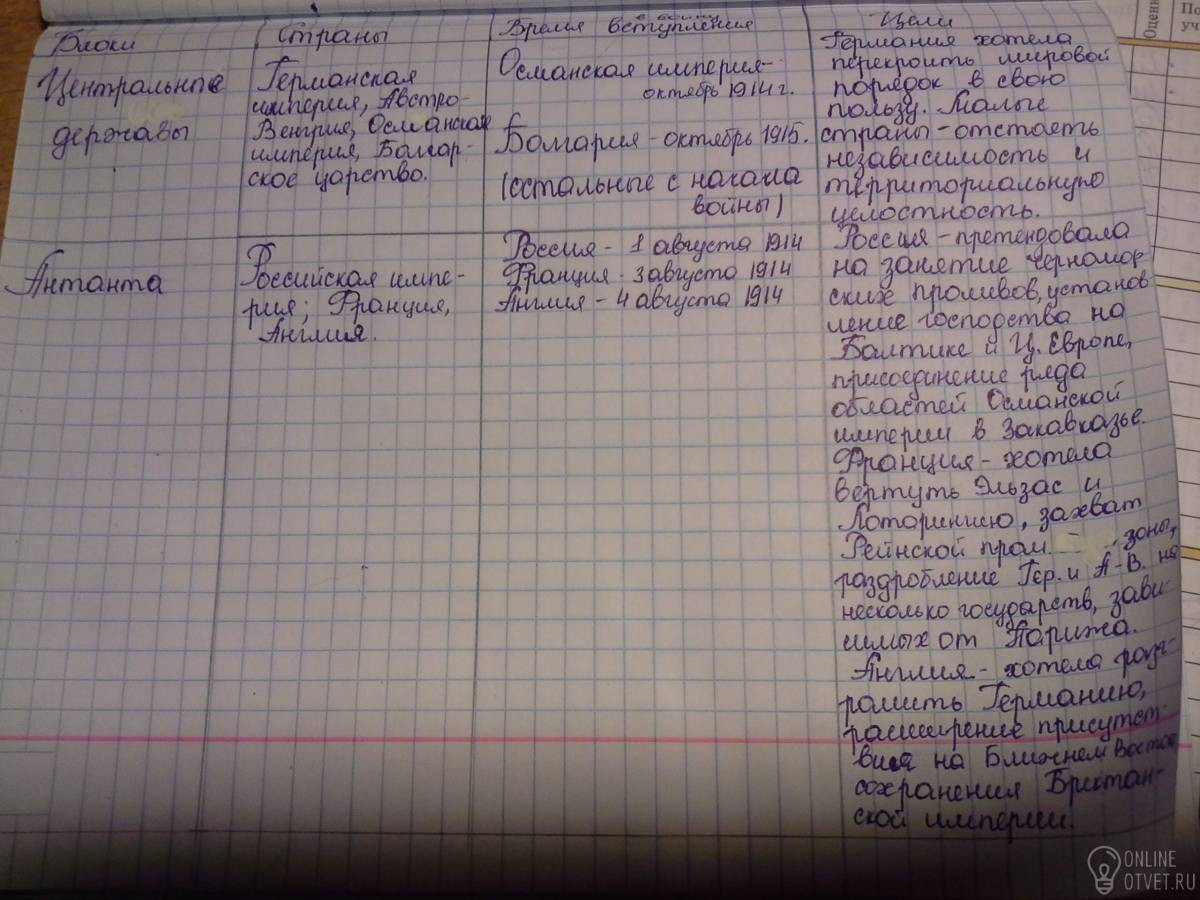 Блоки
Страны
Время вступления
в войну
Цели
Центральные
державы
Германская
империя, Австро-
Венгрия, Османская
империя, Болгар-
ское царство.
Османская империя-
октябрь 1914 г.
Болгария - октябрь 1915.
(остальные с начала
войны)
Германия хотела
перекроить мировой
порядок в свою
пользу. Малые
страны - отстаеть
независимость и
территориальную
целостность.
Антанта
Российская импе-
рия; Франция,
Англия.
Россия - 1 августа 1914
Франция - 3 августа 1914
Англия - 4 августа 1914
Россия - претендовала
на занятие Черномор-
ских проливов, установ-
ление господства на
Балтике и Ц. Европе,
присоединение ряда
областей Османской
империи в Закавказье.
Франция - хотела
вертуть Эльзас и
Лотарингию, захват
Рейнской пром. зоны,
раздробление Гер. и А-В. на
несколько государств, зави-
симых от Парижа.
Англия - хотела разг-
ромить Германию,
расширение присутст-
вия на Ближнем Востоке
сохранения Британ-
ской империи.
Оценк
По
уч
ONLINE
OTVET.RU